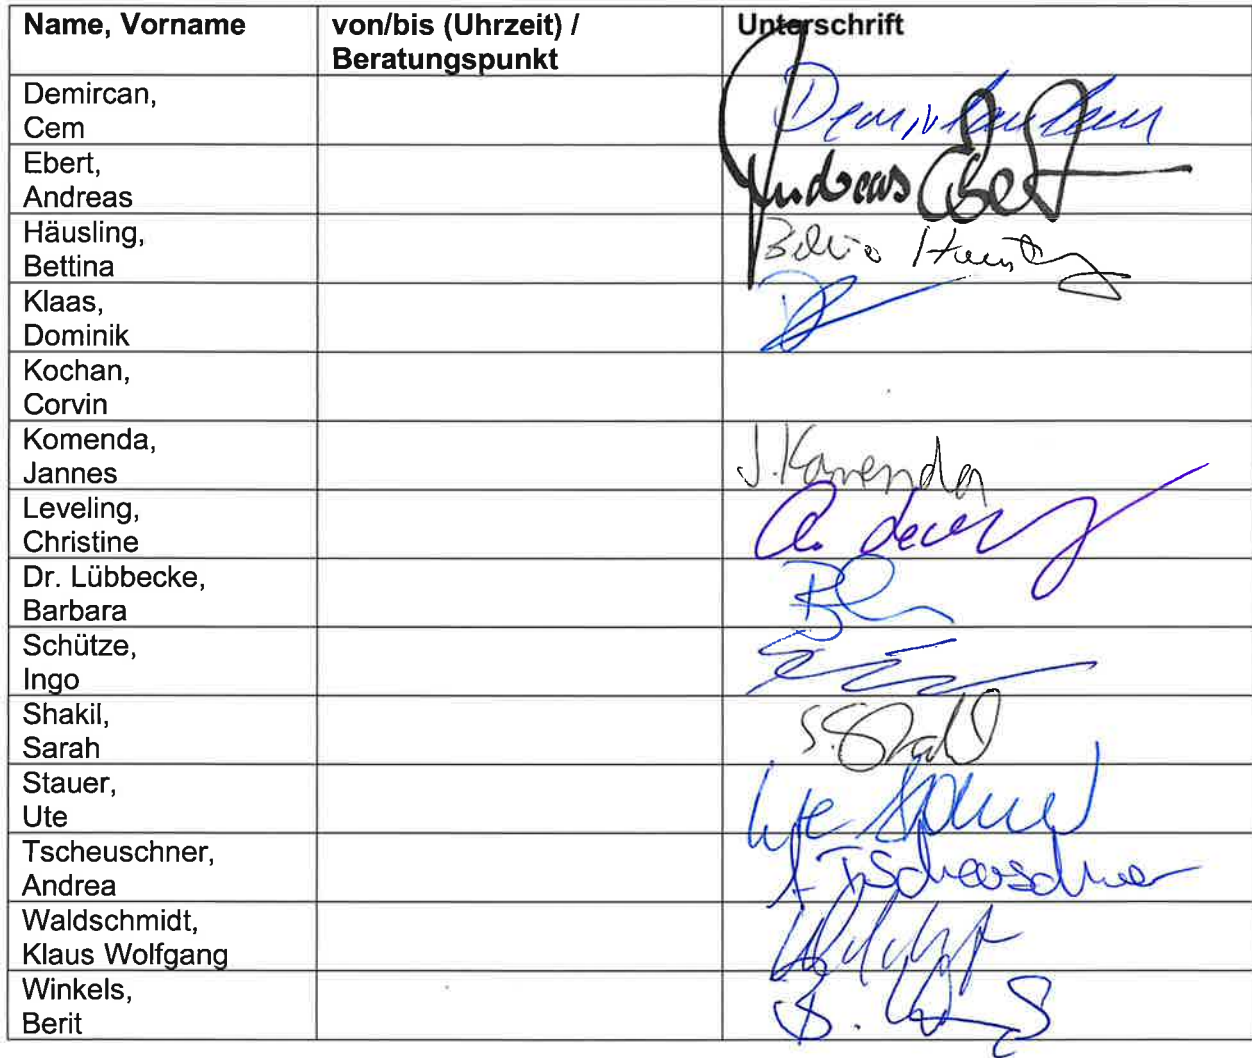 Name, Vorname
von/bis (Uhrzeit) /
Beratungspunkt
Unterschrift
Demircan,
Cem
Ebert,
Andreas
Andreas Ebert
Häusling,
Bettina
Klaas,
Dominik
Kochan,
Corvin
Komenda,
Jannes
J. Komenda
Leveling,
Christine
Dr. Lübbecke,
Barbara
Schütze,
Ingo
Shakil,
Sarah
Stauer,
Ute
Ute Stauer
Tscheuschner,
Andrea
A Tscheuschner
Waldschmidt,
Klaus Wolfgang
Winkels,
Berit